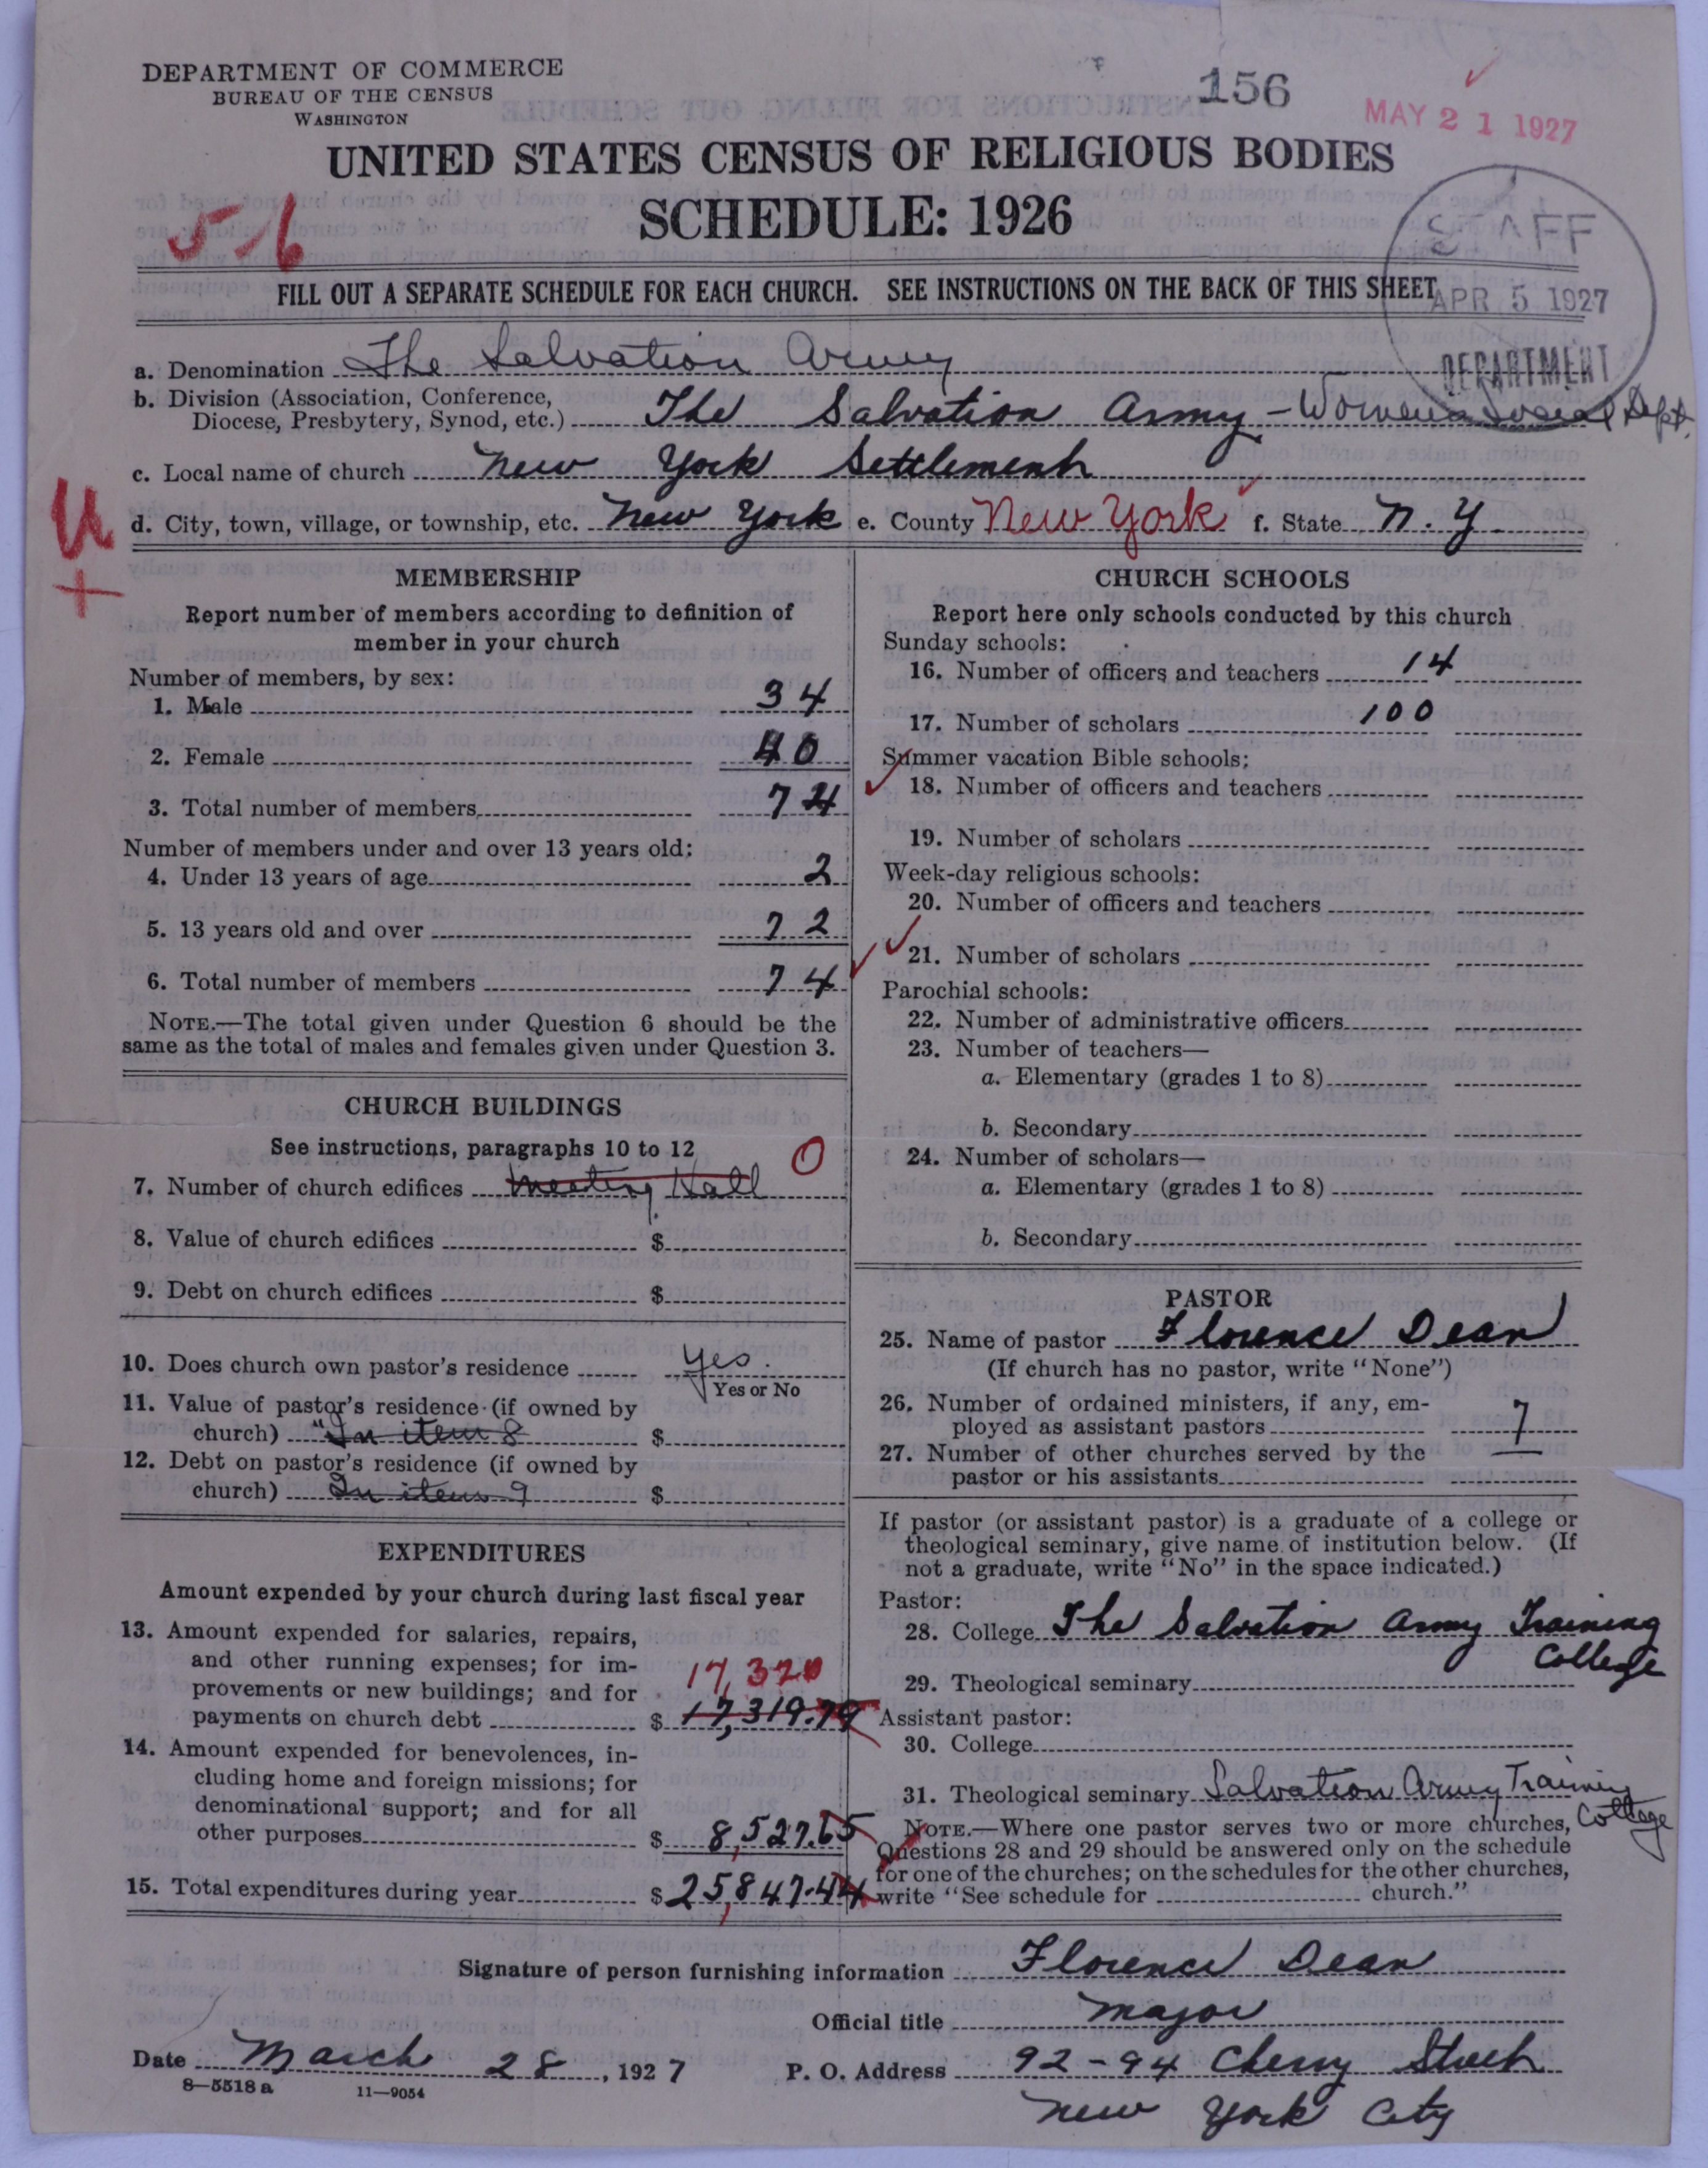 DEPARTMENT OF COMMERCE
BUREAU OF THE CENSUS
WASHINGTON
156
MAY 21 1927
UNITED STATES CENSUS OF RELIGIOUS BODIES
SCHEDULE: 1926
5-6
STAFF
APR 5 1927
DEPARTMENT
FILL OUT A SEPARATE SCHEDULE FOR EACH CHURCH. SEE INSTRUCTIONS ON THE BACK OF THIS SHEET
a. Denomination The Salvation Army
b. Division (Association, Conference,
Diocese, Presbytery, Synod, etc.) The Salvation Army - Women's Social Dept.
c. Local name of church New York Settlement
d. City, town, village, or township, etc. New York e. County New York f. State N. Y.
U
+
MEMBERSHIP
Report number of members according to definition of
member in your church
Number of members, by sex:
1. Male 34
2. Female 40
3. Total number of members 74
Number of members under and over 13 years old:
4. Under 13 years of age 2
5. 13 years old and over 72
6. Total number of members 74
NOTE.—The total given under Question 6 should be the
same as the total of males and females given under Question 3.
CHURCH BUILDINGS
See instructions, paragraphs 10 to 12
7. Number of church edifices Meeting Hall 0
8. Value of church edifices $
9. Debt on church edifices $
10. Does church own pastor's residence Yes.
Yes or No
11. Value of pastor's residence (if owned by
church) "In item 8 $
12. Debt on pastor's residence (if owned by
church) In item 9 $
EXPENDITURES
Amount expended by your church during last fiscal year
13. Amount expended for salaries, repairs,
and other running expenses; for im-
provements or new buildings; and for 17,320
payments on church debt $ 17,319.79
14. Amount expended for benevolences, in-
cluding home and foreign missions; for
denominational support; and for all
other purposes $ 8,527.65
15. Total expenditures during year $ 25,847.44
CHURCH SCHOOLS
Report here only schools conducted by this church
Sunday schools:
16. Number of officers and teachers 14
17. Number of scholars 100
Summer vacation Bible schools:
18. Number of officers and teachers
19. Number of scholars
Week-day religious schools:
20. Number of officers and teachers
21. Number of scholars
Parochial schools:
22. Number of administrative officers
23. Number of teachers—
a. Elementary (grades 1 to 8)
b. Secondary
24. Number of scholars—
a. Elementary (grades 1 to 8)
b. Secondary
PASTOR
25. Name of pastor Florence Dean
(If church has no pastor, write "None")
26. Number of ordained ministers, if any, em-
ployed as assistant pastors 7
27. Number of other churches served by the
pastor or his assistants —
If pastor (or assistant pastor) is a graduate of a college or
theological seminary, give name of institution below. (If
not a graduate, write "No" in the space indicated.)
Pastor:
28. College The Salvation Army Training
College
29. Theological seminary
Assistant pastor:
30. College
31. Theological seminary Salvation Army Training
College
NOTE.—Where one pastor serves two or more churches,
Questions 28 and 29 should be answered only on the schedule
for one of the churches; on the schedules for the other churches,
write "See schedule for church."
Signature of person furnishing information Florence Dean
Official title Major
Date March 28, 1927 P. O. Address 92-94 Cherry Street
8—5518 a 11—9054
New York City